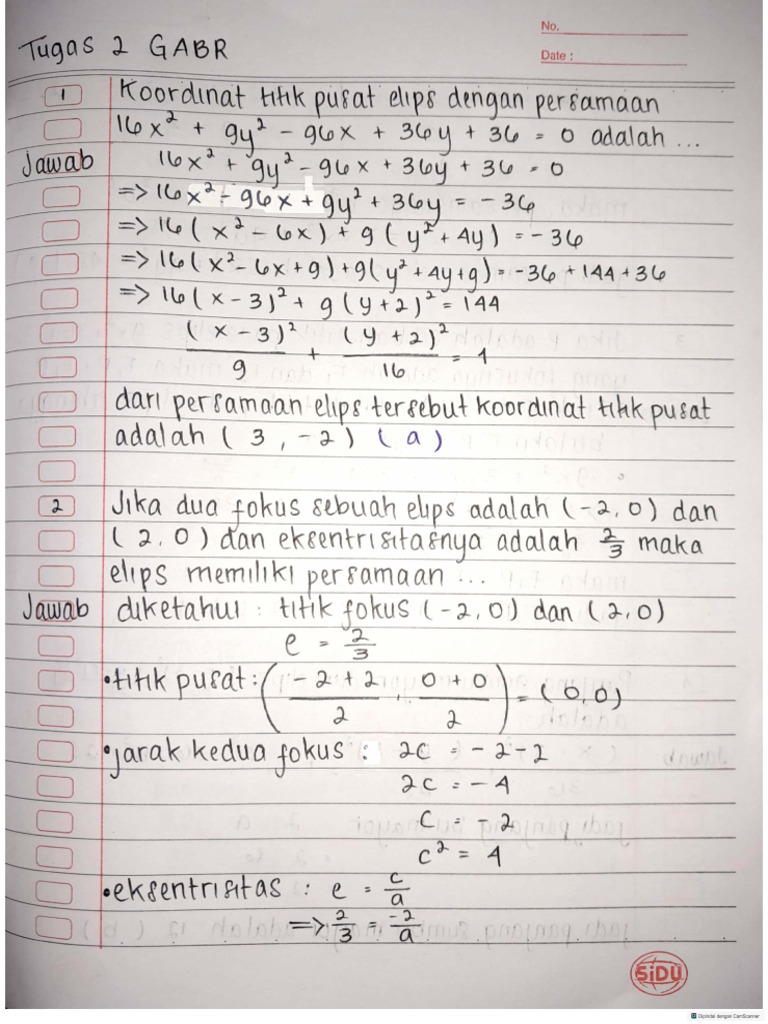 Tugas 2 GABR
No.
Date :
1 Koordinat titik pusat elips dengan persamaan
16x² + 9y² - 96x + 36y + 36 = 0 adalah ...
Jawab 16x² + 9y² - 96x + 36y + 36 = 0
=> 16x² - 96x + 9y² + 36y = - 36
=> 16 ( x² - 6x ) + 9 ( y² + 4y ) = - 36
=> 16 ( x² - 6x + 9 ) + 9 ( y² + 4y + 9 ) = -36 + 144 + 36
=> 16 ( x - 3 )² + 9 ( y + 2 )² = 144
( x - 3 )² / 9 + ( y + 2 )² / 16 = 1
dari persamaan elips tersebut koordinat titik pusat
adalah ( 3 , -2 ) ( a )
2 Jika dua fokus sebuah elips adalah ( -2, 0 ) dan
( 2, 0 ) dan eksentrisitasnya adalah 2/3 maka
elips memiliki persamaan ...
Jawab diketahui : titik fokus ( -2, 0 ) dan ( 2, 0 )
e = 2/3
• titik pusat : ( -2 + 2 / 2 , 0 + 0 / 2 ) = ( 0, 0 )
• jarak kedua fokus : 2c = - 2 - 2
2c = - 4
c = - 2
c² = 4
• eksentrisitas : e = c/a
=> 2/3 = -2/a
SiDU
Dipindai dengan CamScanner